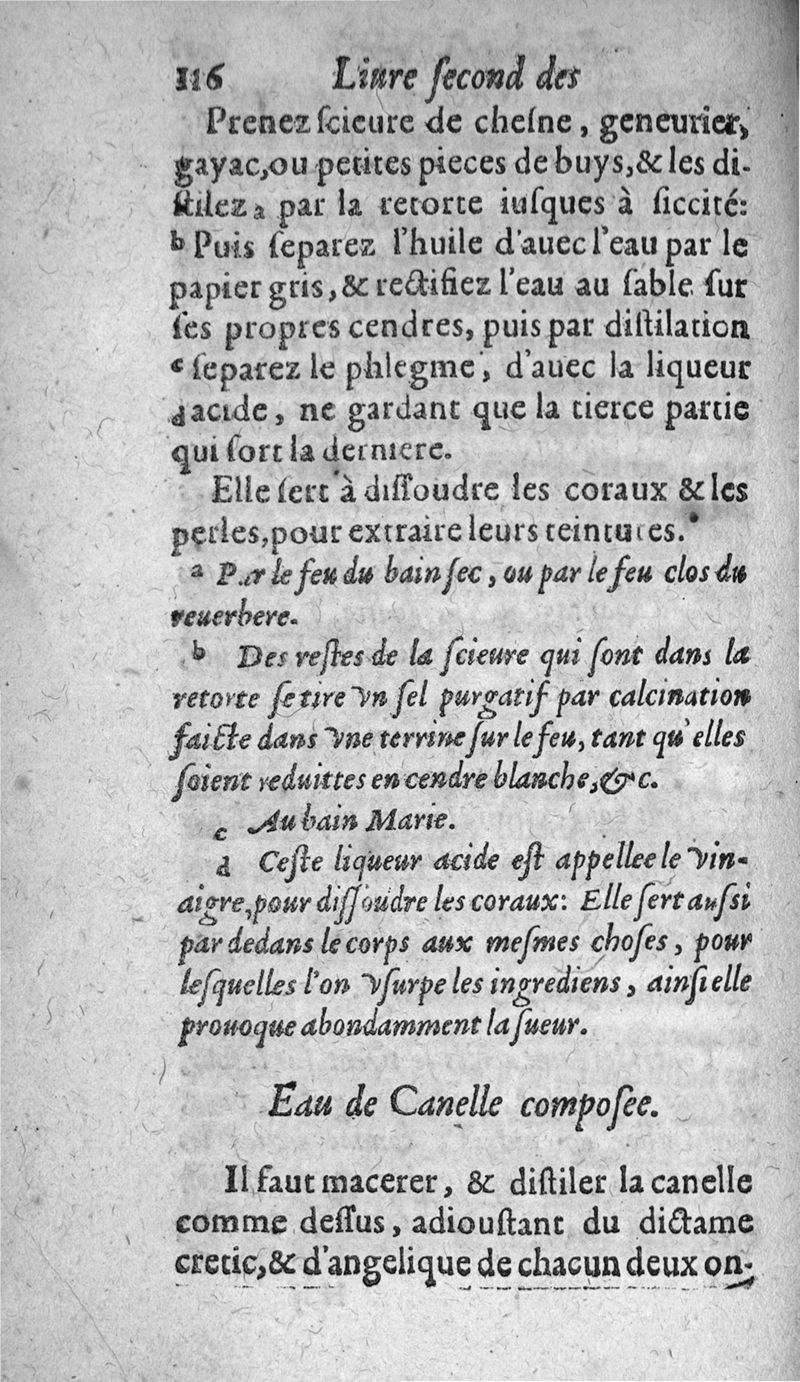 116 Liure ſecond des
Prenez ſcieure de cheſne, geneurier,
gayac, ou petites pieces de buys, & les di-
ſtilez a par la retorte iuſques à ſiccité:
b Puis ſeparez l'huile d'auec l'eau par le
papier gris, & rectifiez l'eau au ſable ſur
ſes propres cendres, puis par diſtilation
c ſeparez le phlegme, d'auec la liqueur
d acide, ne gardant que la tierce partie
qui ſort la derniere.
Elle ſert à diſſoudre les coraux & les
perles, pour extraire leurs teintures.
a Par le feu du bain ſec, ou par le feu clos du
reuerbere.
b Des reſtes de la ſcieure qui ſont dans la
retorte ſe tire vn ſel purgatif par calcination
faicte dans vne terrine ſur le feu, tant qu'elles
ſoient reduittes en cendre blanche, &c.
c Au bain Marie.
d Ceſte liqueur acide eſt appellee le vin-
aigre, pour diſſoudre les coraux: Elle ſert auſsi
par dedans le corps aux meſmes choſes, pour
leſquelles l'on vſurpe les ingrediens, ainſi elle
prouoque abondamment la ſueur.
Eau de Canelle compoſee.
Il faut macerer, & diſtiler la canelle
comme deſſus, adiouſtant du dictame
cretic, & d'angelique de chacun deux on-